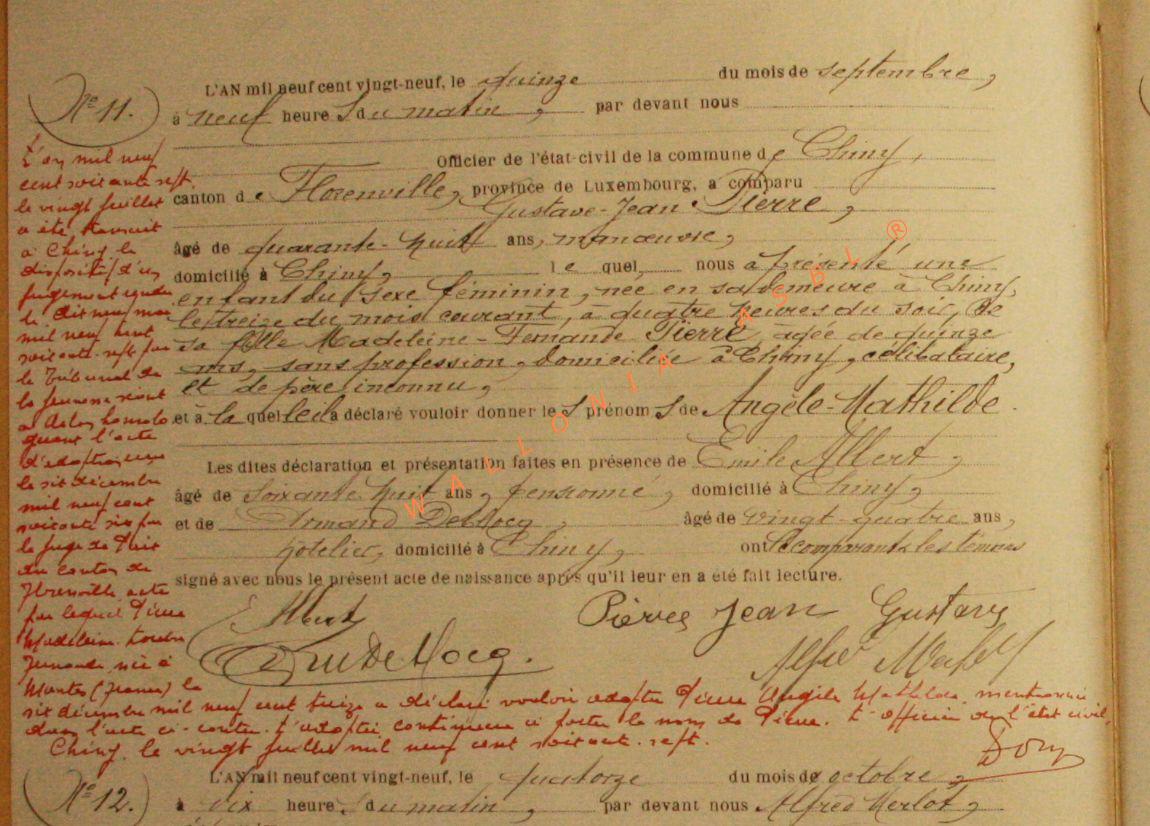 Nº 11.
L'AN mil neuf cent vingt-neuf, le quinze du mois de septembre,
à neuf heures du matin, par devant nous
Officier de l'état-civil de la commune de Chiny,
canton de Florenville, province de Luxembourg, a comparu
Gustave-Jean Pierre,
âgé de quarante-huit ans, manœuvre,
domicilié à Chiny, lequel nous a présenté une
enfant du sexe féminin, née en sa demeure à Chiny,
le treize du mois courant, à quatre heures du soir, de
sa fille Madeleine-Fernande Pierre, âgée de quinze
ans, sans profession, domiciliée à Chiny, célibataire,
et de père inconnu,
et à laquelle il a déclaré vouloir donner les prénoms de Angèle-Mathilde.
Les dites déclaration et présentation faites en présence de Emile Albert,
âgé de soixante huit ans, pensionné, domicilié à Chiny,
et de Armand Dehocq, âgé de vingt-quatre ans,
hôtelier, domicilié à Chiny, ont le comparant & les témoins
signé avec nous le présent acte de naissance après qu'il leur en a été fait lecture.
E Albert Pierre Jean Gustave
DeHocq. Alfred Merlot
L'an mil neuf
cent soixante sept.
le vingt juillet
a été transcrit
à Chiny le
dispositif d'un
jugement rendu
le dix neuf mai
mil neuf cent
soixante-sept par
le Tribunal de
la jeunesse séant
à Arlon homolo
guant l'acte
d'adoption reçu
le six décembre
mil neuf cent
soixante six par
le juge de Paix
du canton de
Florenville, acte
par lequel Pierre
Madeleine
Fernande née à
Mantes (France) le
six décembre mil neuf cent treize a déclaré vouloir adopter Pierre Angèle Mathilde, mentionnée
dans l'acte ci-contre. L'adoptée continuera à porter le nom de Pierre. L'officier de l'état civil.
Chiny, le vingt juillet mil neuf cent soixante-sept.
WALLONIA ASBL ®
Nº 12.
L'AN mil neuf cent vingt-neuf, le quatorze du mois de octobre,
à dix heures du matin, par devant nous Alfred Merlot,